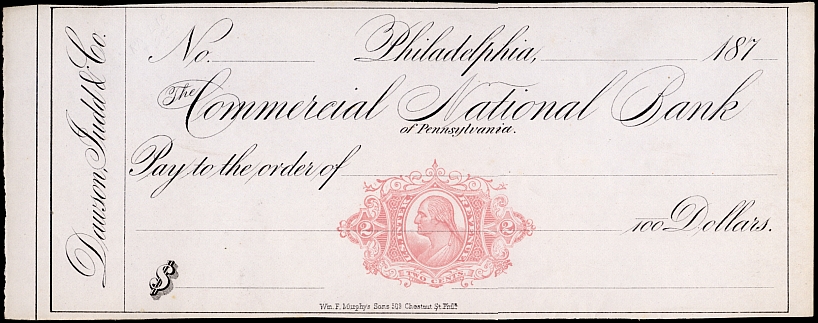 Dawson, Judd & Co.
No. Philadelphia, 187
The Commercial National Bank
of Pennsylvania.
Pay to the order of
/100 Dollars.
2 2
TWO CENTS
$
Wm. F. Murphy's Sons 509 Chestnut St. Phila.